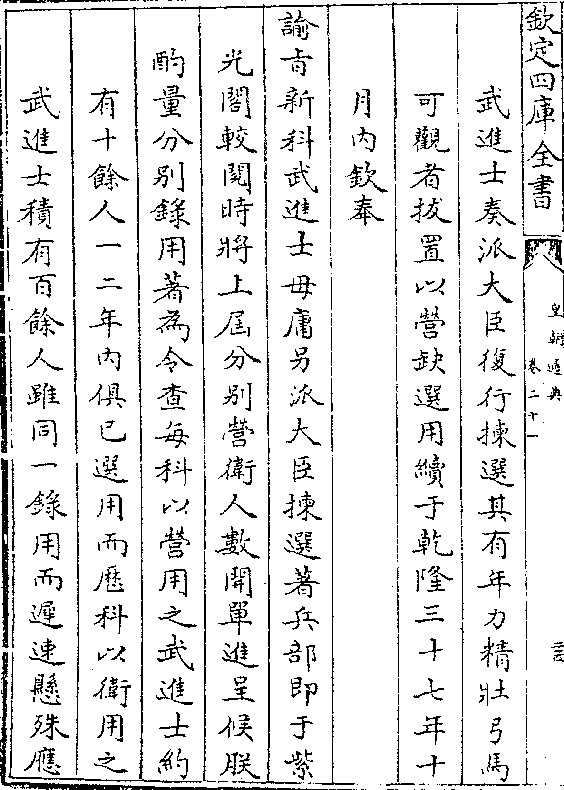 欽定四庫全書
皇朝通典
卷二十一
武進士奏派大臣復行揀選其有年力精壯弓馬
可觀者拔置以營缺選用續于乾隆三十七年十
月內欽奉
諭旨新科武進士毋庸另派大臣揀選著兵部即于紫
光閣較閱時將上屆分別營衛人數開單進呈候朕
酌量分別錄用著為令查每科以營用之武進士約
有十餘人一二年內俱已選用而歷科以衛用之
武進士積有百餘人雖同一錄用而遲速懸殊應